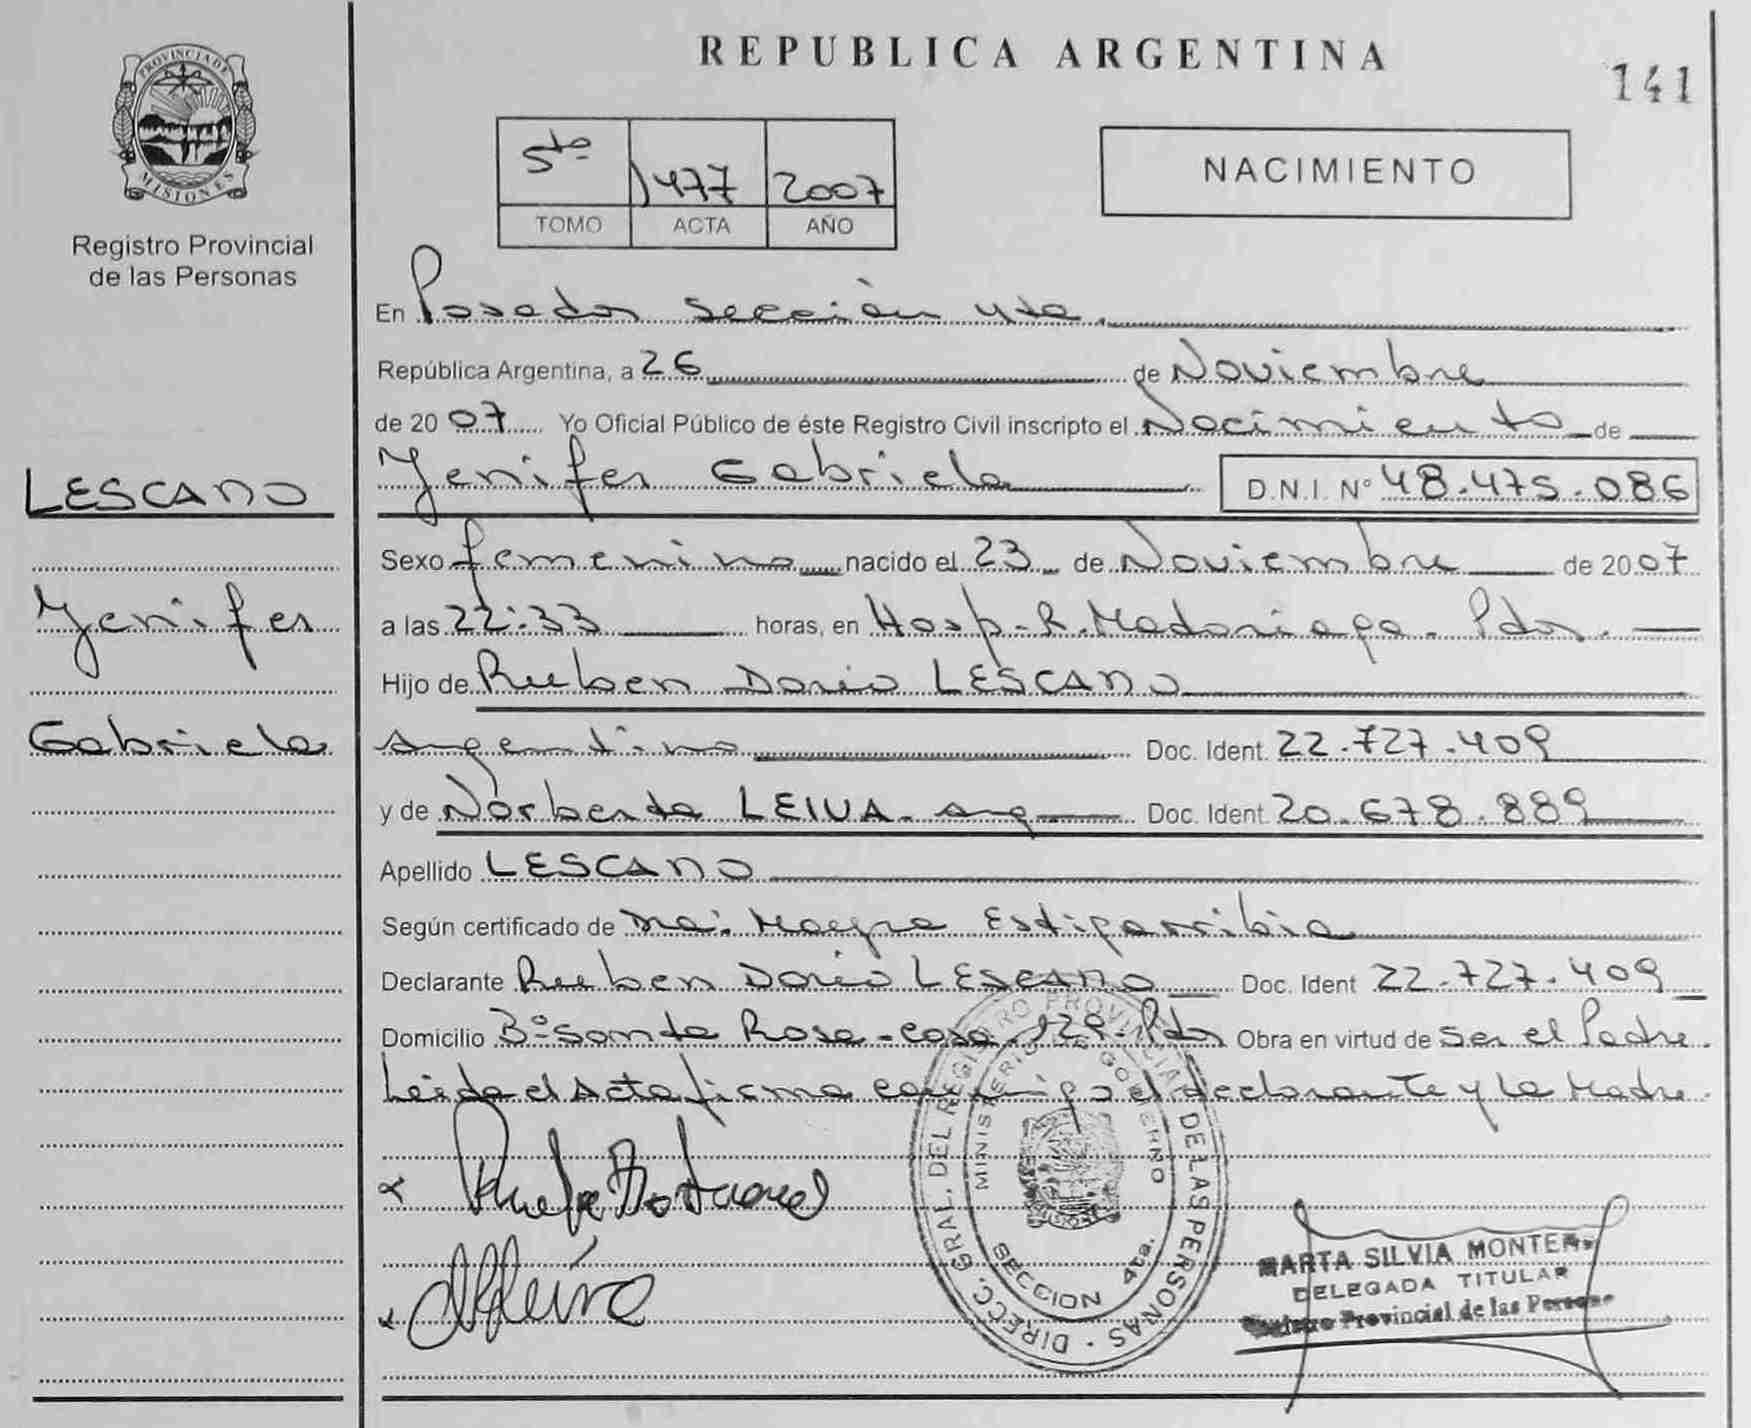 PROVINCIA DE
MISIONES
Registro Provincial
de las Personas
LESCANO
Yenifer
Gabriela
REPUBLICA ARGENTINA
141
5to 1477 2007
TOMO ACTA AÑO
NACIMIENTO
En Posadas sección 4ta.
República Argentina, a 26 de Noviembre
de 2007 Yo Oficial Público de éste Registro Civil inscripto el Nacimiento de
Yenifer Gabriela D.N.I. N° 48.475.086
Sexo femenino nacido el 23 de Noviembre de 2007
a las 22:33 horas, en Hosp. R. Madariaga. Pdas.
Hijo de Ruben Dario LESCANO
Argentino Doc. Ident. 22.727.409
y de Norberta LEIVA. arg. Doc. Ident. 20.678.889
Apellido LESCANO
Según certificado de Mayra Estigarribia
Declarante Ruben Dario LESCANO Doc. Ident 22.727.409
Domicilio B° Santa Rosa - casa 129. Pdas Obra en virtud de Ser el Padre.
Leida el Acta firma conmigo el declarante y la Madre.
DIRECC. GRAL. DEL REGISTRO PROVINCIAL DE LAS PERSONAS
MINISTERIO DE GOBIERNO
SECCION 4ta.
MARTA SILVIA
DELEGADA TITULAR
Registro Provincial de las Personas